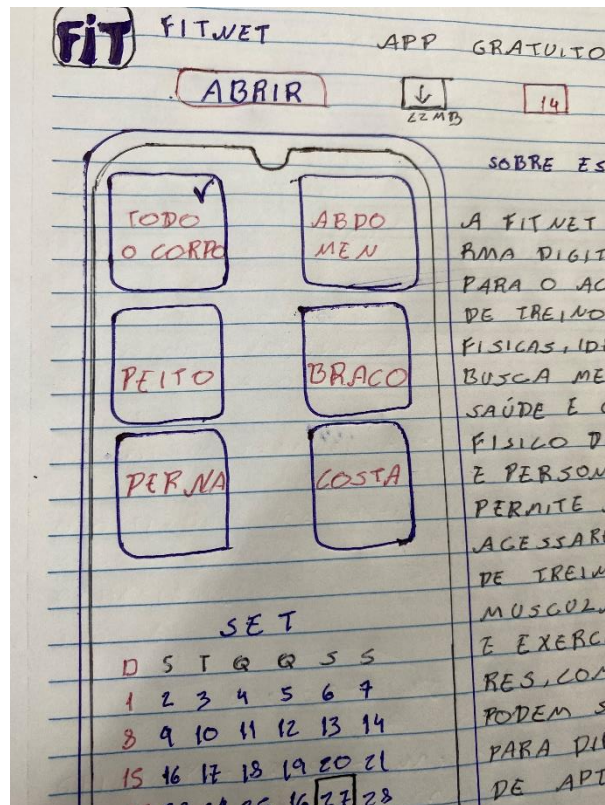 FIT FITNET APP GRATUITO
ABRIR
22 MB
14
SOBRE ES
TODO
O CORPO
ABDO
MEN
PEITO
BRACO
PERNA
COSTA
SET
D S T Q Q S S
1 2 3 4 5 6 7
8 9 10 11 12 13 14
15 16 17 18 19 20 21
16 27 28
A FITNET
RMA DIGIT
PARA O AC
DE TREINO
FISICAS, ID
BUSCA ME
SAÚDE E
FISICO D
E PERSON
PERMITE
ACESSAR
DE TREIN
MUSCUL
E EXERC
RES, COM
PODEM S
PARA DI
DE APT